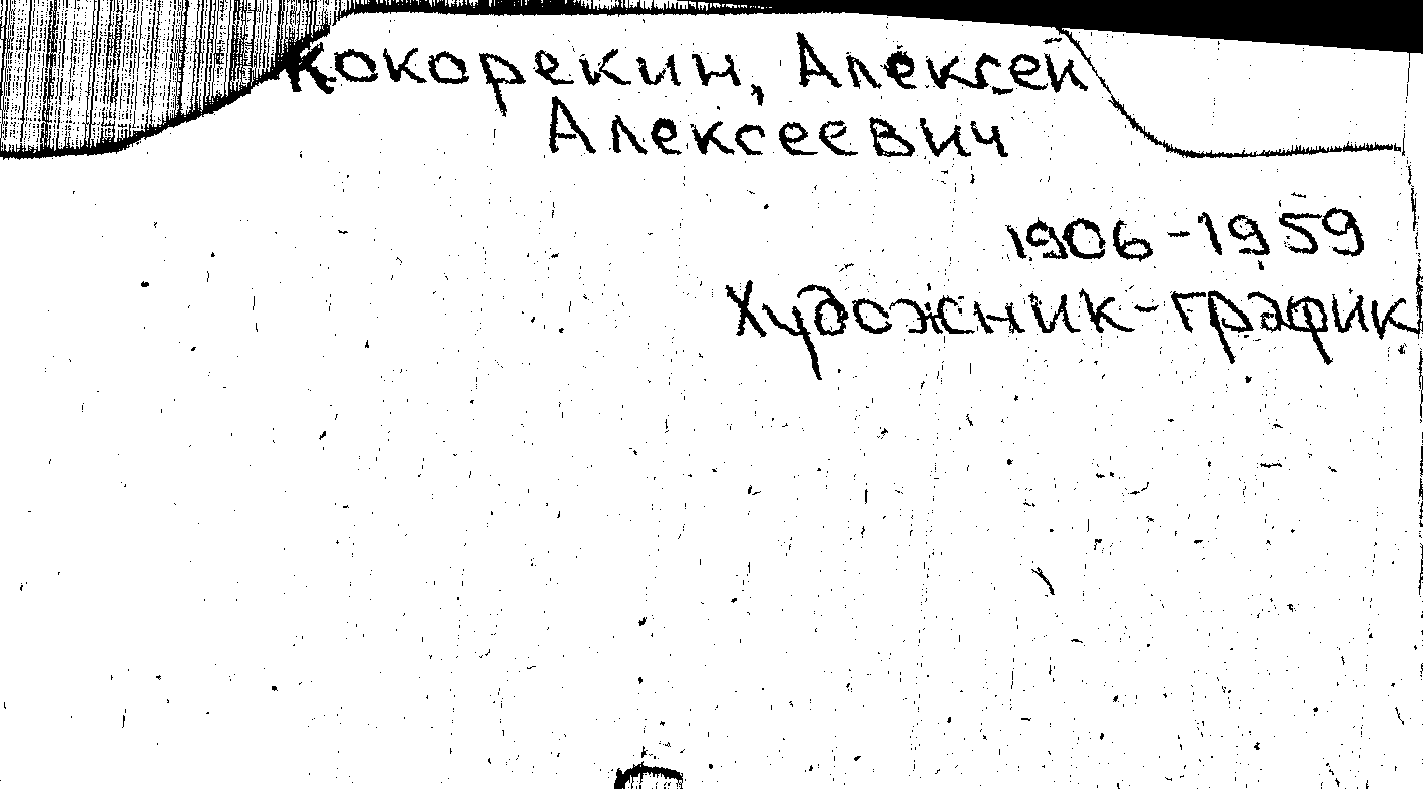 Кокорекин, Алексей
Алексеевич
1906-1959
Художник-график